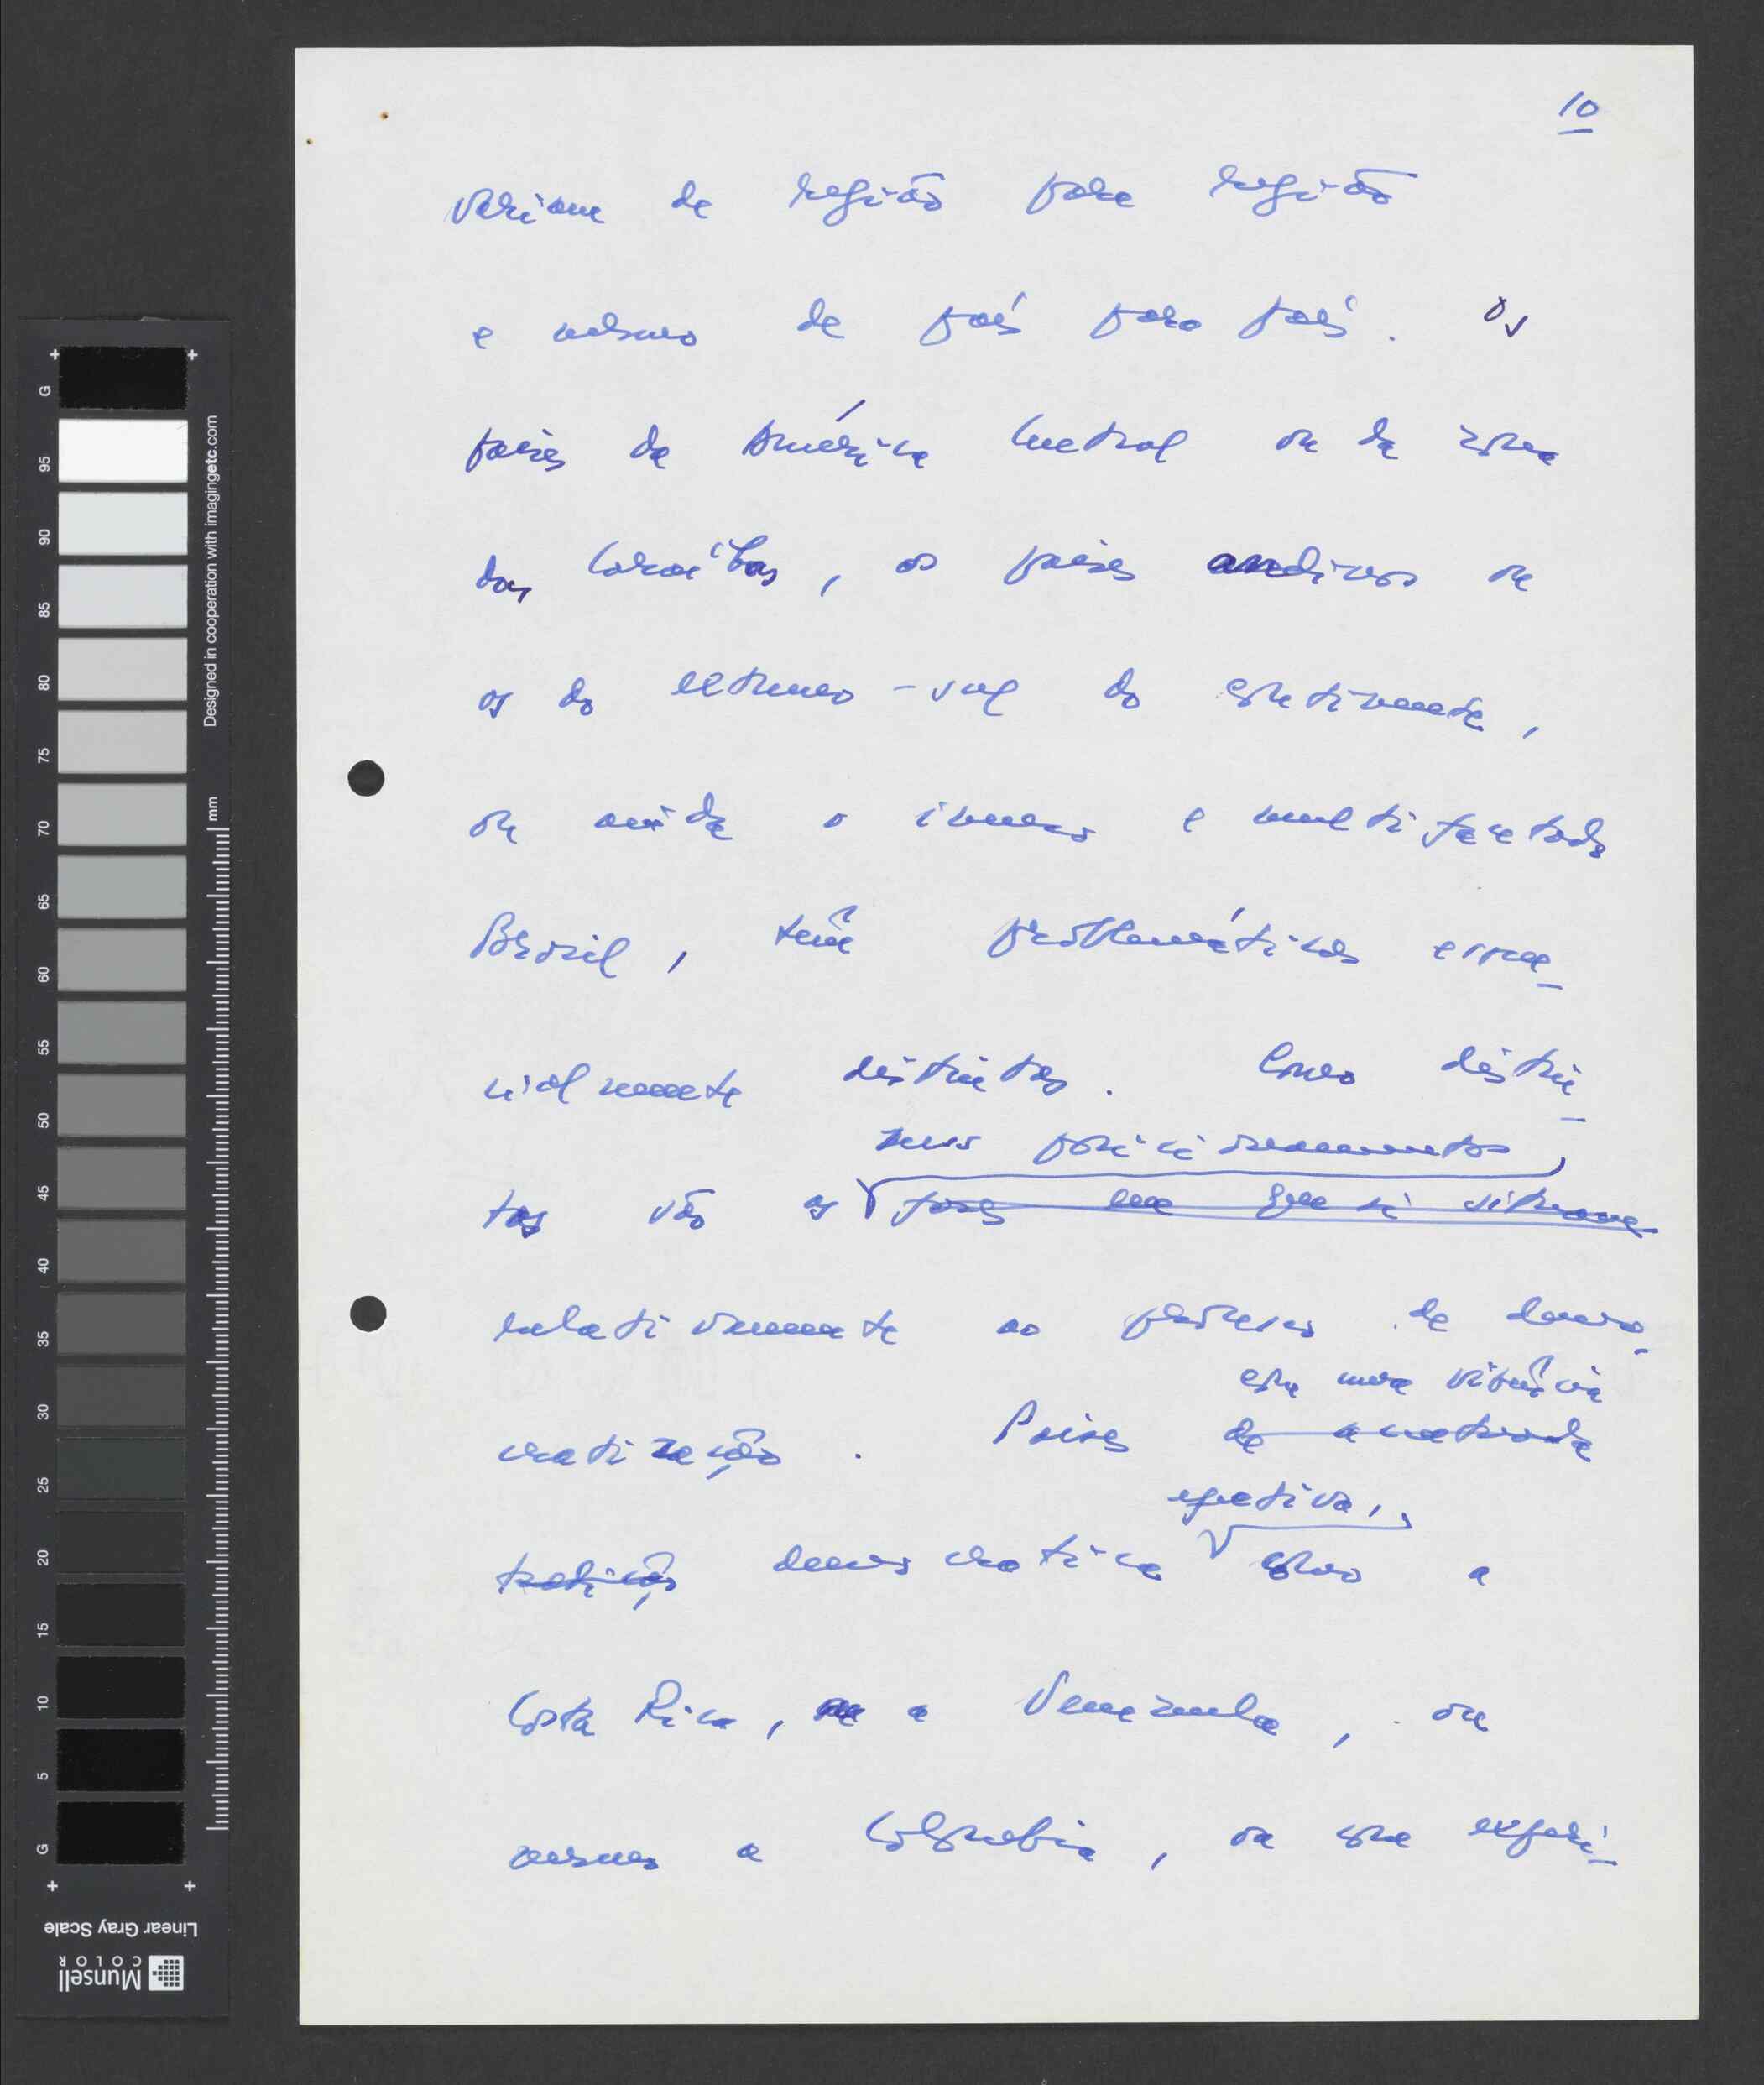 10
variam de região para região
e mesmo de país para país. Os
países da América Central ou da zona
das Caraíbas, os países andinos ou
os do extremo-sul do continente,
ou ainda o imenso e multifacetado
Brasil, têm problemáticas essen-
cialmente distintas. Como distin-
seus posicionamentos,
tas são os fases em que se situam
relativamente ao processo de demo-
cratização. Países
com uma vivência
de acentuada
efectiva,
tradição democrática como a
Costa Rica, a Venezuela, ou
mesmo a Colômbia, ou com experi-
G 95 90 85 80 75 70 65 60 55 50 45 40 35 30 25 20 15 10 5 G
Designed in cooperation with imagingetc.com
mm
Linear Gray Scale
Munsell
COLOR